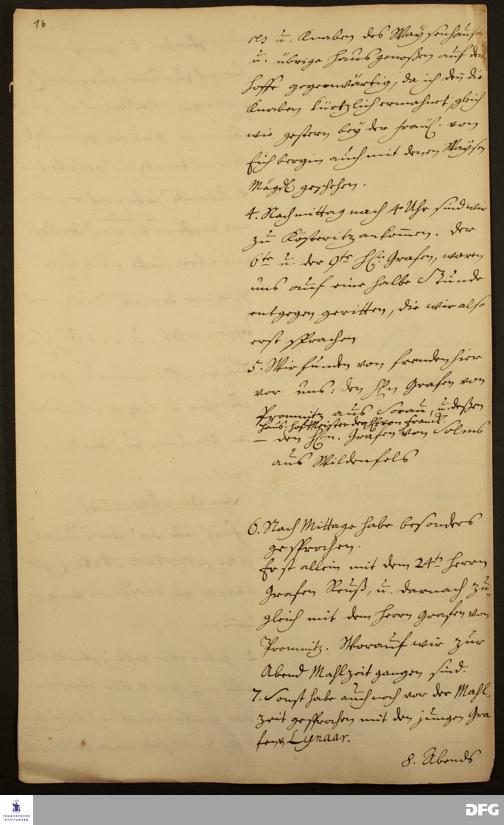 16
res u. Knaben des Waysenhauses
u. übrige Hausgenoßen auf dem
Hoffe gegenwärtig, da ich den die
Knaben kürtzlich ermahnet, gleich
wie gestern bey der Fräul. von
Eichbergin auch mit denen Waysen
Mägdl. geschehen.
4. Nachmittag nach 4 Uhr sind wir
zu Kösteritz ankommen. Der
6te u. der 9te HE. Grafen, waren
uns auff eine halbe Stunde
entgegen geritten, die wir also
erst sprachen
5. Wir funden von fremden hier
vor uns: den HEn Grafen von
Promnitz aus Sorau, u. deßen
Haus-Hofmeister den HE von
– den HEn. Grafen von Solms
aus Wildenfels
6. Nach Mittage habe besonders
gesprochen.
Erst allein mit dem 24ten Herrn
Grafen Reuß, u. darnach zu-
gleich mit dem Herrn Grafen von
Promnitz. Worauf wir zur
Abend Mahlzeit gangen sind.
7. Sonst habe auch noch vor der Mahl
zeit gesprochen mit den jungen Gra
fen Lynaar.
8. Abends
FRANCKESCHE
STIFTUNGEN
DFG